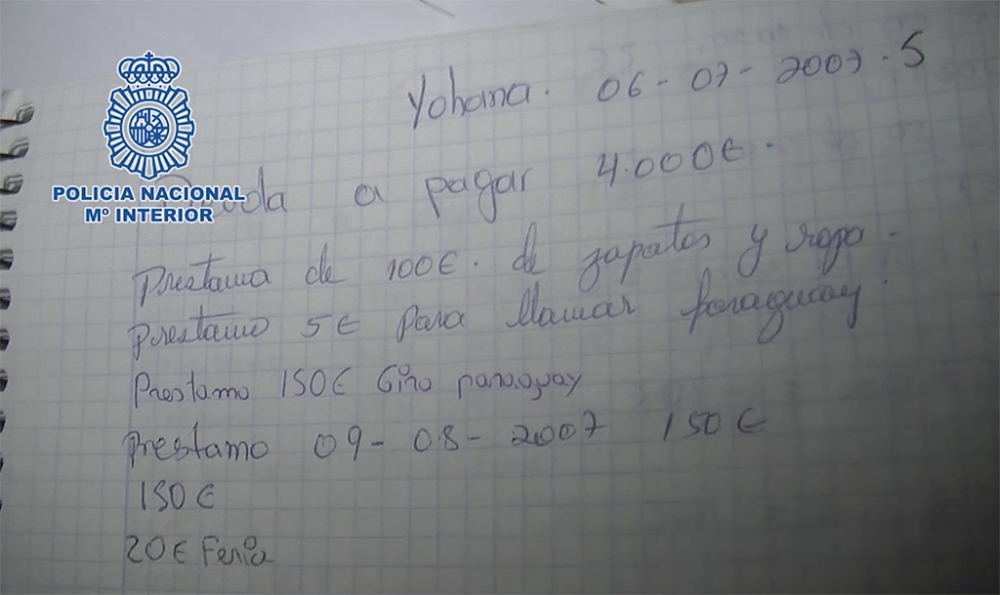 Yohana. 06-07-2007.5
POLICIA NACIONAL
Mº INTERIOR
a pagar 4.000€.
Prestamo de 100€. de zapatos y ropa.
prestamo 5€ para llamar paraguay.
Prestamo 150€ Giro paraguay
prestamo 09-08-2007 150€
150€
20€ Feria